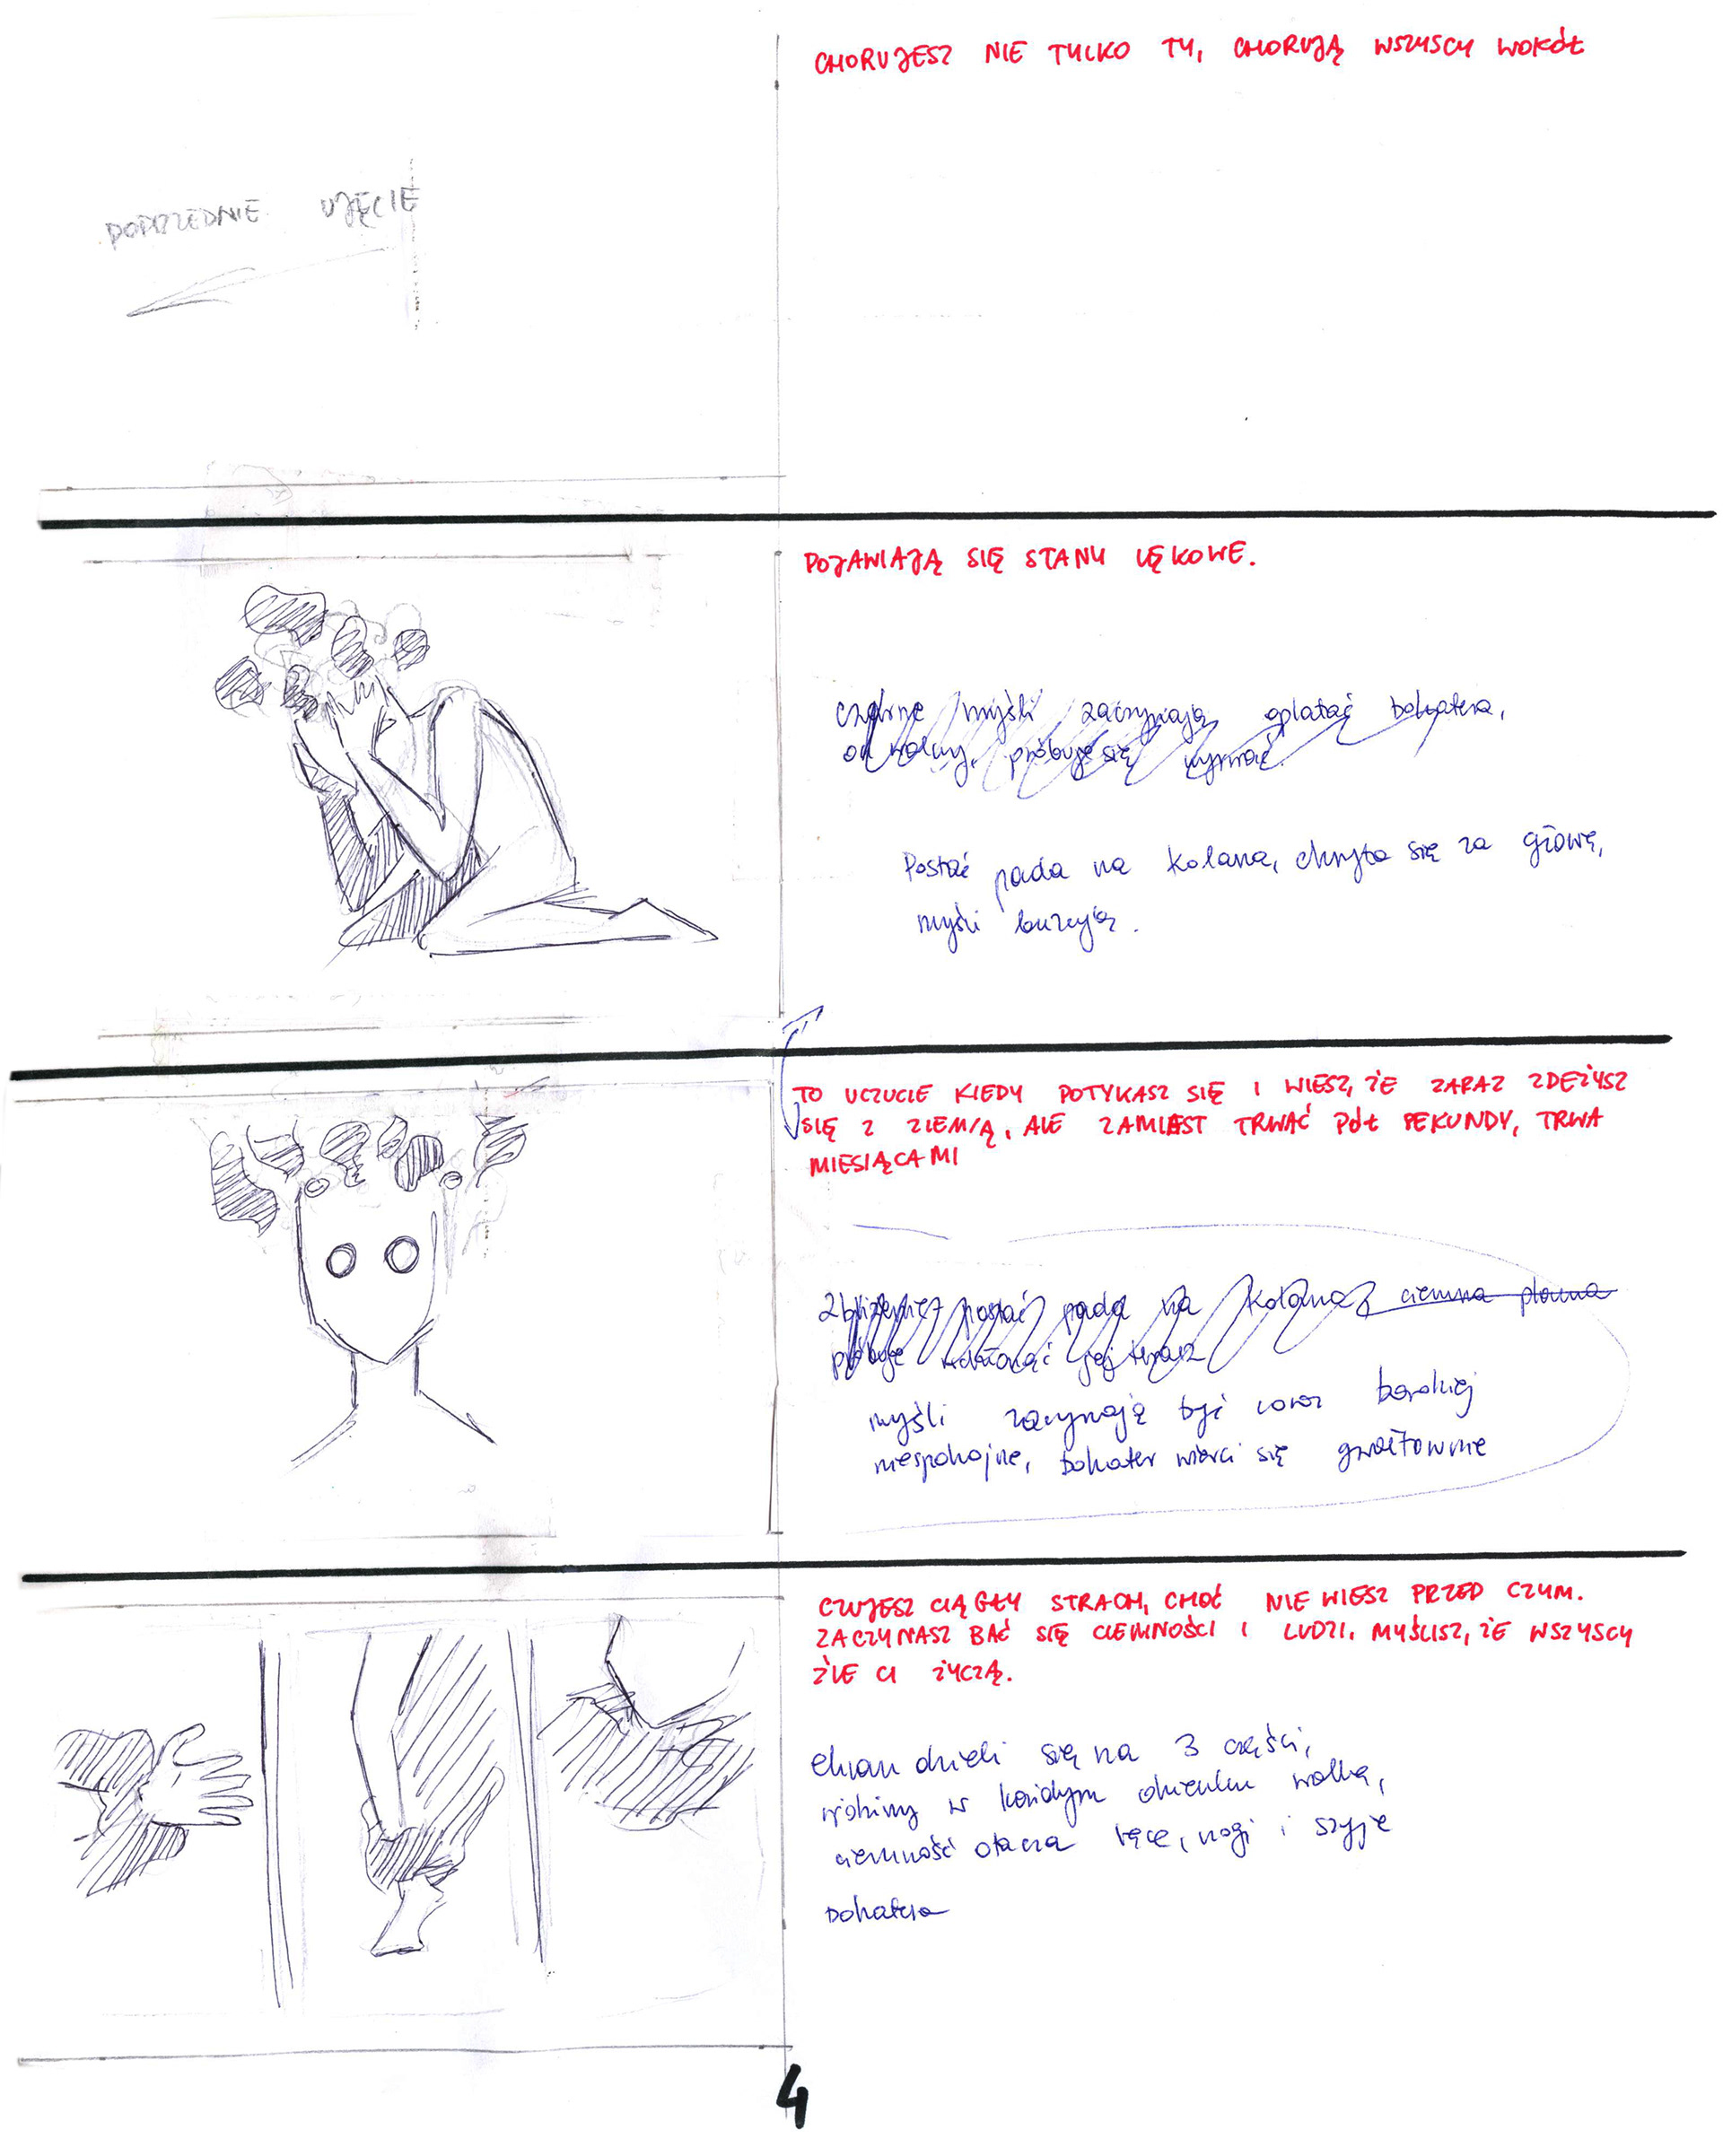 CHORUJESZ NIE TYLKO TY, CHORUJĄ WSZYSCY WOKÓŁ
POPRZEDNIE UJĘCIE
POJAWIAJĄ SIĘ STANY LĘKOWE.
czarne myśli zaczynają oplatać bohatera,
próbuje się wyrwać.
Postać pada na kolana, chwyta się za głowę,
myśli buzują.
TO UCZUCIE KIEDY POTYKASZ SIĘ I WIESZ, ŻE ZARAZ ZDEŻYSZ
SIĘ Z ZIEMIĄ, ALE ZAMIAST TRWAĆ PÓŁ SEKUNDY, TRWA
MIESIĄCAMI
Zbliżenie, postać pada na kolana, ciemna plama
próbuje jej twarz
myśli zaczynają być coraz bardziej
niespokojne, bohater wierci się gwałtownie
CZUJESZ CIĄGŁY STRACH, CHOĆ NIE WIESZ PRZED CZYM.
ZACZYNASZ BAĆ SIĘ CIEMNOŚCI I LUDZI. MYŚLISZ, ŻE WSZYSCY
ŹLE CI ŻYCZĄ.
ekran dzieli się na 3 części,
widzimy w każdym okienku walkę,
ciemność otacza ręce, nogi i szyję
bohatera
4